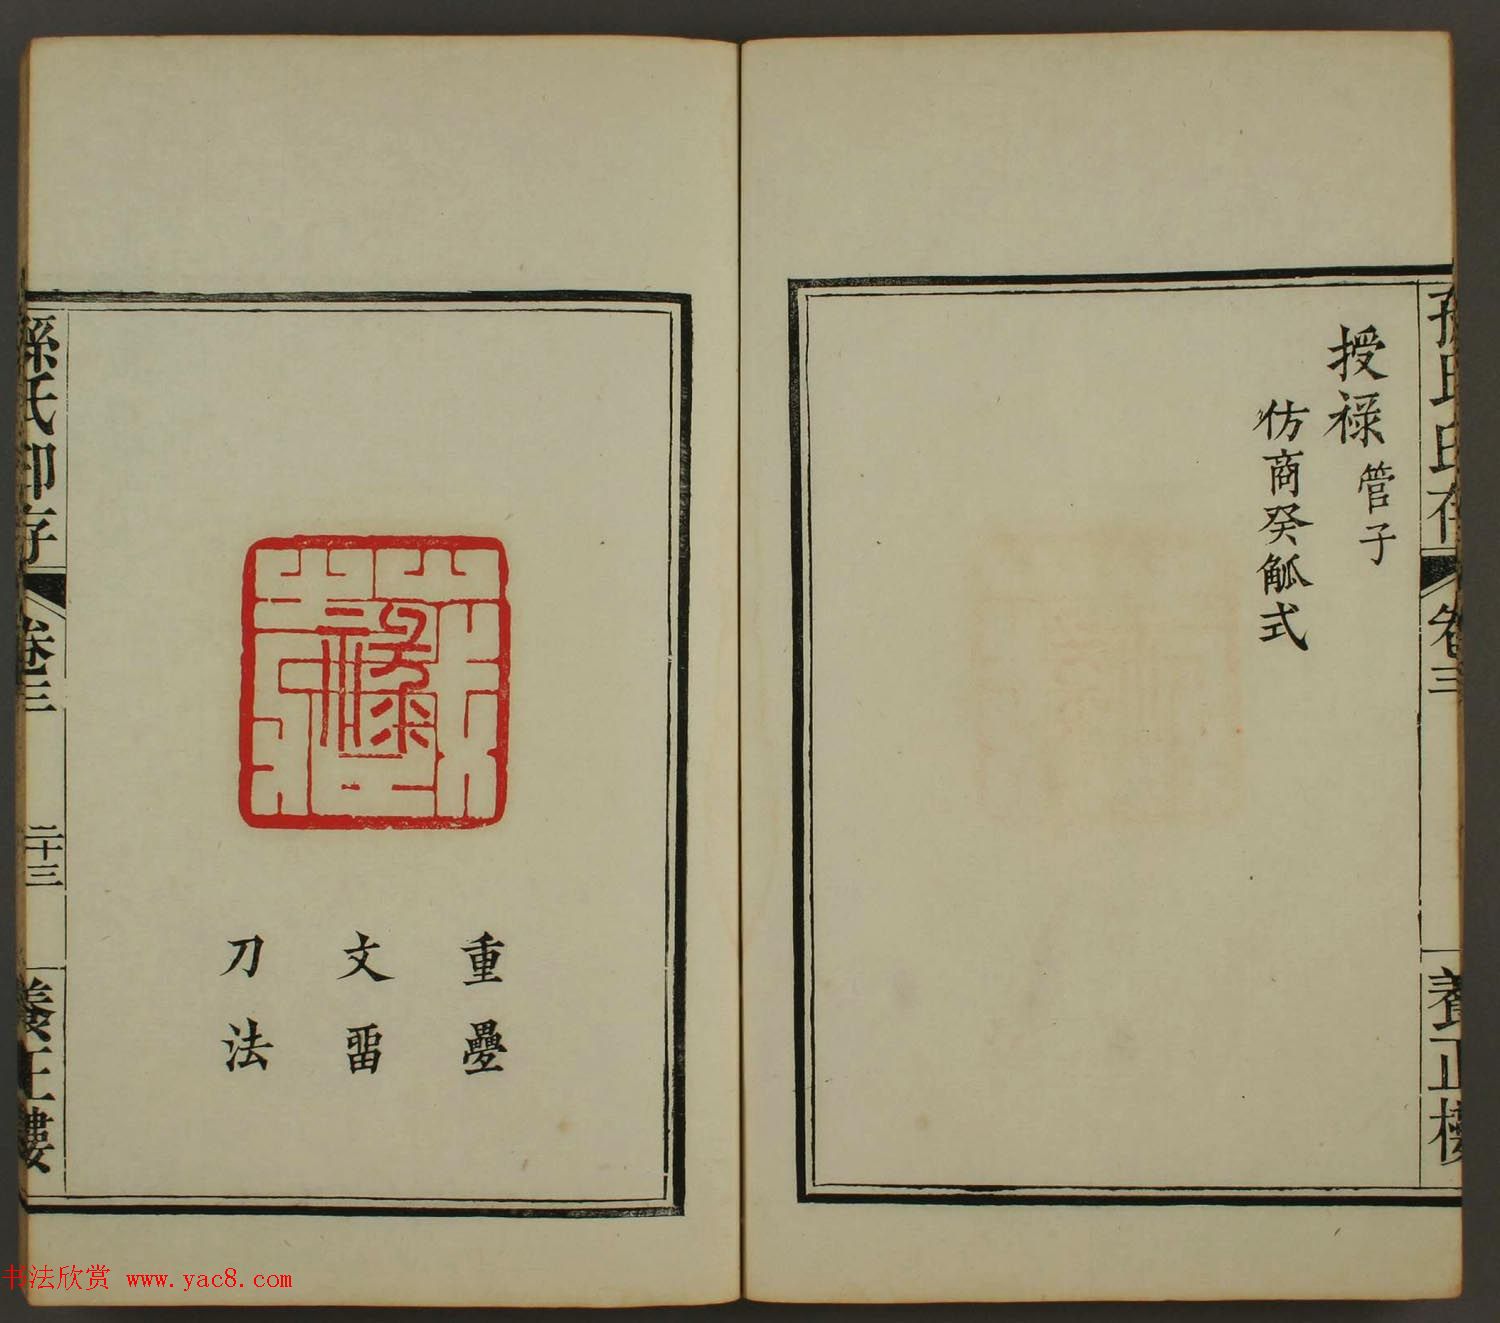 孫氏印存
卷三
養正樓
授祿 管子
仿商癸觚式
重疊
文畱
刀法
孫氏印存
卷三
二十三
養正樓
书法欣赏 www.yac8.com